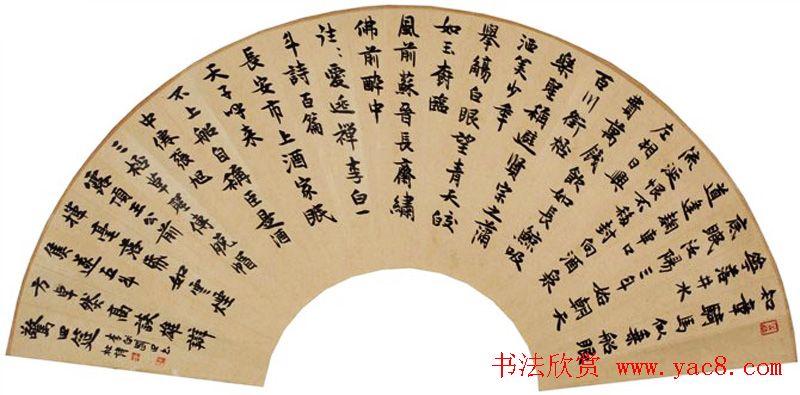 知章騎馬似乘船眼
花落井水
底眠汝陽三斗始朝天
道逢麴車口
流涎恨不移封向酒泉
左相日興
費萬錢飲如長鯨吸
百川銜杯
樂聖稱避賢宗之瀟
洒美少年
舉觴白眼望青天皎
如玉樹臨
風前蘇晉長齋繡
佛前醉中
往往愛逃禪李白一
斗詩百篇
長安市上酒家眠
天子呼來
不上船自稱臣是酒
中僊張旭
三杯草聖傳脫帽
露頂王公前
揮毫落紙如雲煙
焦遂五斗
方卓然高談雄辯
驚四筵
书法欣赏 www.yac8.com